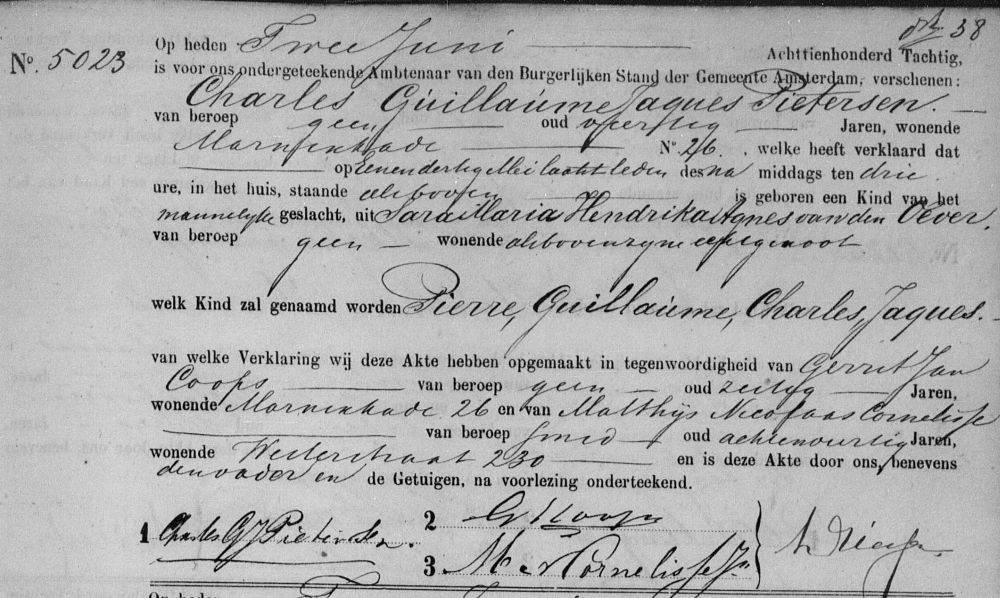 38
Op heden Twee Juni Achttienhonderd Tachtig,
No. 5023
is voor ons ondergeteekende Ambtenaar van den Burgerlijken Stand der Gemeente Amsterdam, verschenen:
Charles Guillaúme Jaques Pietersen.
van beroep geen oud veertig Jaren, wonende
Marnixkade No. 26, welke heeft verklaard dat
op Eenendertig Mei laatstleden des na middags ten drie
ure, in het huis, staande alsboven is geboren een Kind van het
mannelyke geslacht, uit Sara Maria Hendrika Agnes van den Oever,
van beroep geen wonende alsboven zyne echtgenoot
welk Kind zal genaamd worden Pierre, Guillaúme, Charles, Jaques.
van welke Verklaring wij deze Akte hebben opgemaakt in tegenwoordigheid van Gerrit Jan
Coops van beroep geen oud zestig Jaren,
wonende Marnixkade 26 en van Matthijs Nicolaas Cornelisse
van beroep smid oud achtenveertig Jaren,
wonende Westerstraat 230 en is deze Akte door ons, benevens
den vader en de Getuigen, na voorlezing onderteekend.
1 Charles G J Pietersen.
2 G J Coops
3 M N Cornelisse Jr
Op heden